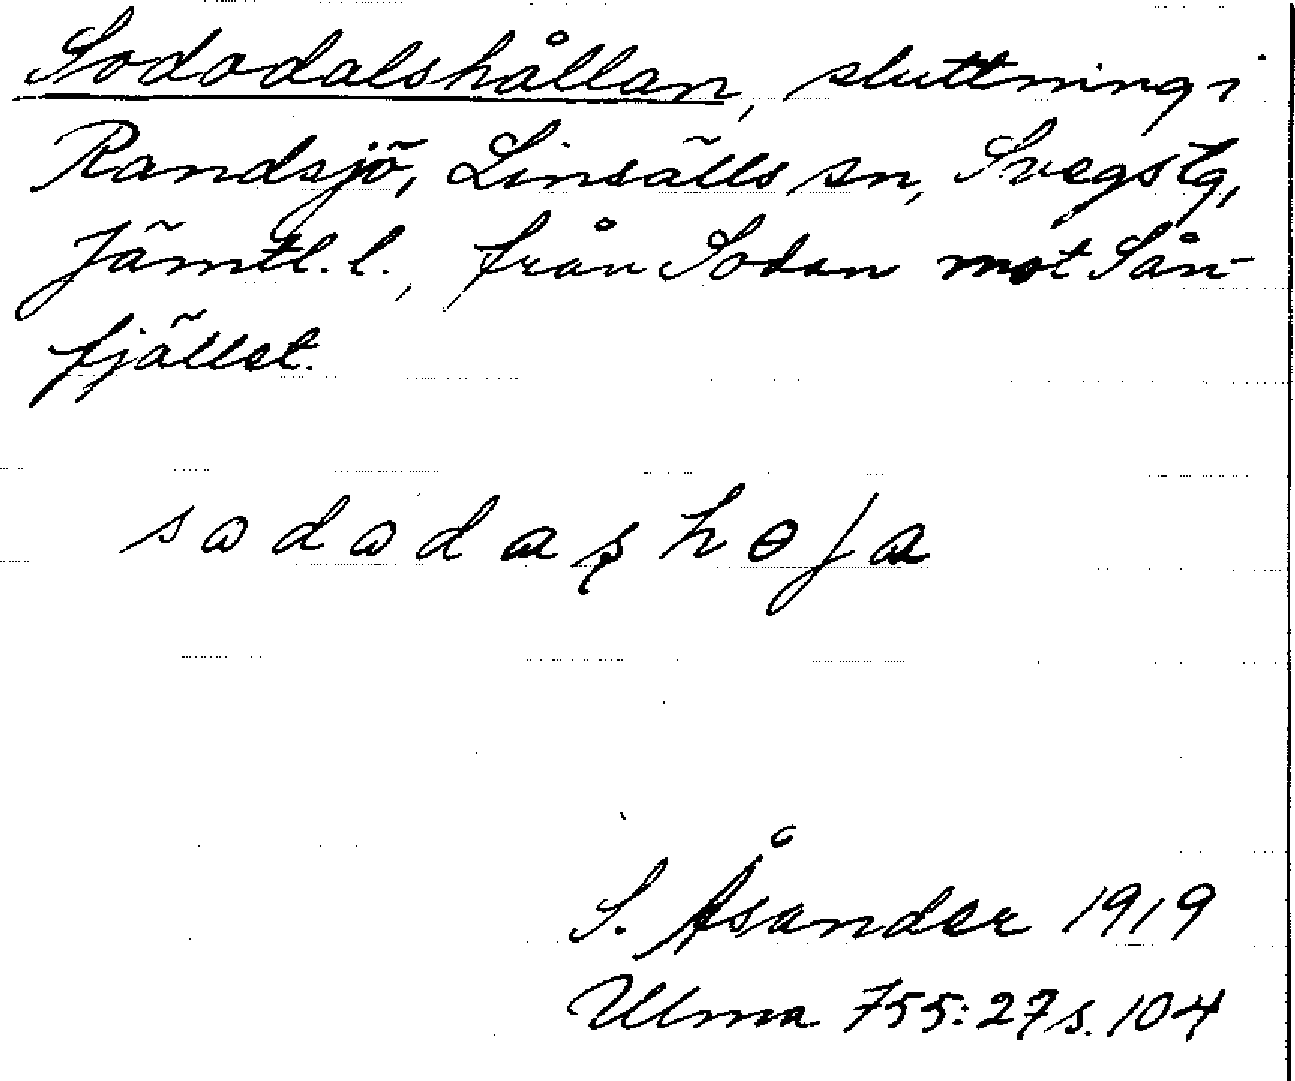 Sododalshållan, sluttning i
Randsjö, Linsälls sn, Svegs tg,
Jämtl. l., från Sodan mot Sån-
fjället.
S. Åsander 1919
Ulma 755:27 s. 104